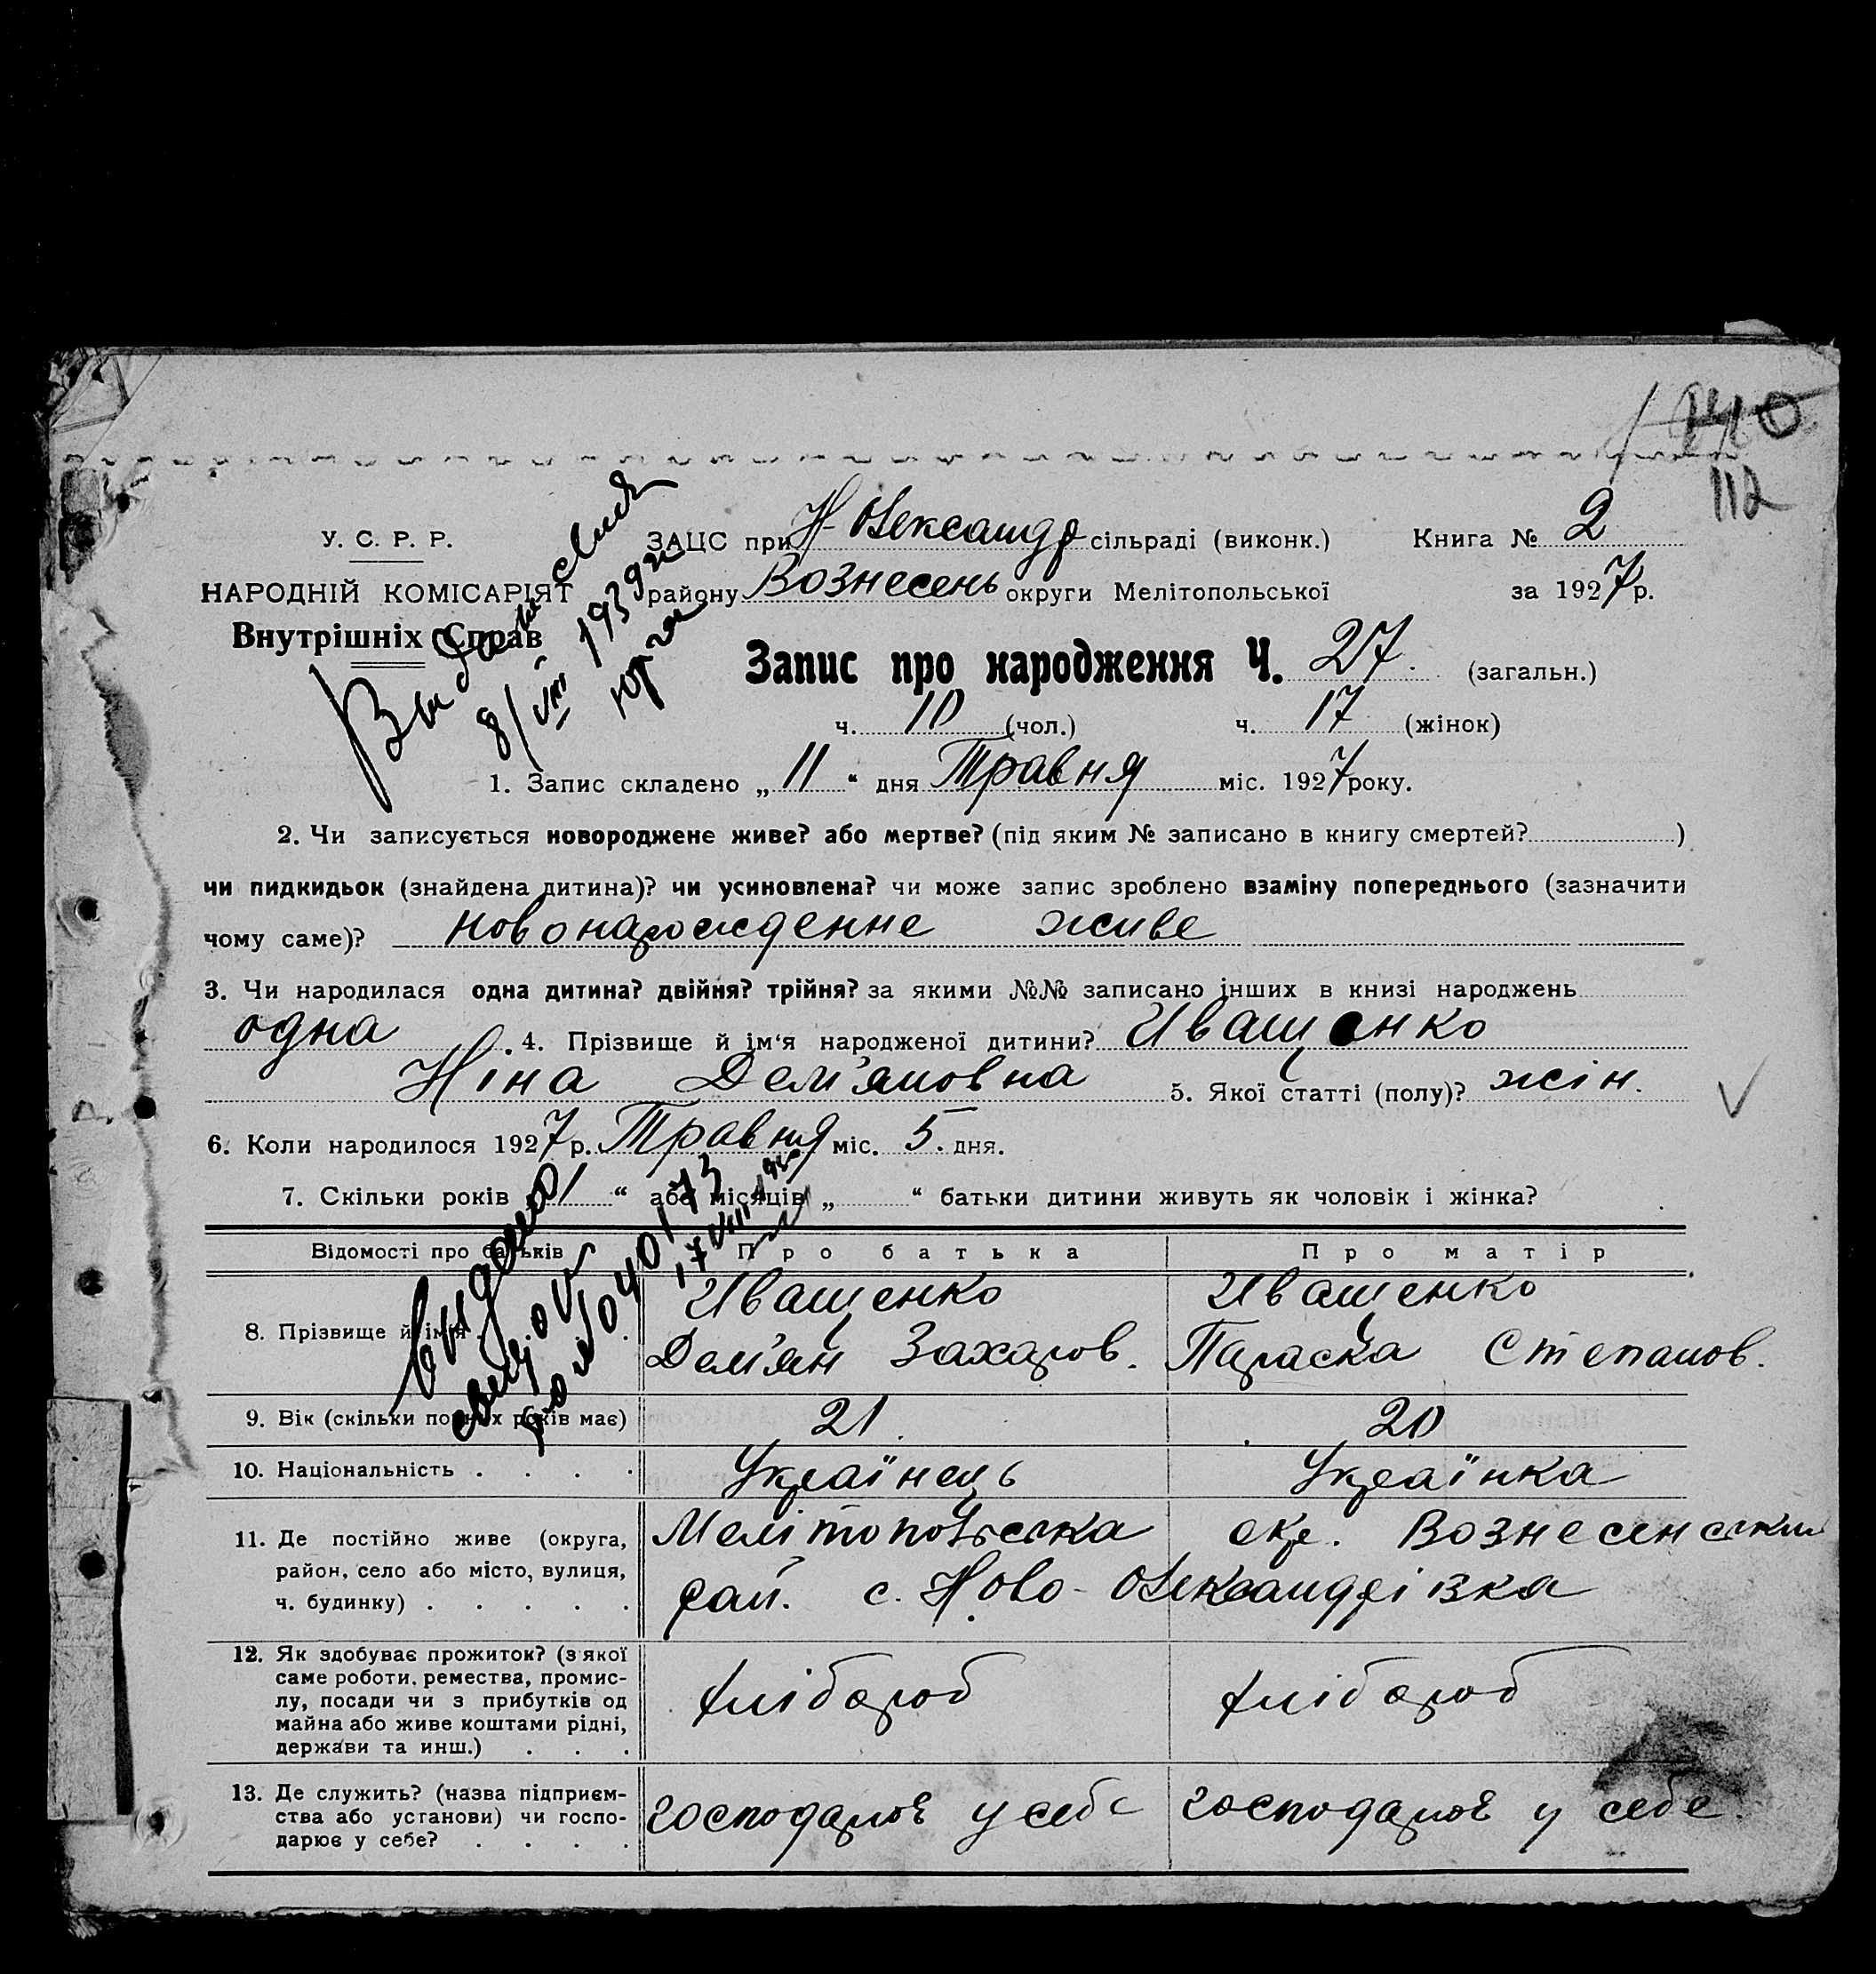 112
У. С. Р. Р.
НАРОДНІЙ КОМІСАРІЯТ
Внутрішніх Справ
ЗАЦС при Н-Олександр сільраді (виконк.) Книга № 2
району Вознесень округи Мелітопольської за 1927 р.
8/VIII 1939
Запис про народження Ч. 27. (загальн.)
ч. 10 (чол.) ч. 17 (жінок)
1. Запис складено „ 11 “ дня Травня міс. 1927 року.
2. Чи записується новороджене живе? або мертве? (під яким № записано в книгу смертей? )
чи пидкидьок (знайдена дитина)? чи усиновлена? чи може запис зроблено взаміну попереднього (зазначити
чому саме)? новонарожденне живе
3. Чи народилася одна дитина? двійня? трійня? за якими №№ записано інших в книзі народжень
одна 4. Прізвище й ім‘я народженої дитини? Иващенко
Ніна Дем'яновна 5. Якої статті (полу)? жін.
6. Коли народилося 1927 р. Травня міс. 5. дня.
7. Скільки років 1 “ або місяців „ “ батьки дитини живуть як чоловік і жінка?
Відомості про батьків Про батька Про матір
8. Прізвище й ім‘я Иващенко Дем'ян Захаров. Иващенко Параска Степанов.
9. Вік (скільки повних років має) 21. 20
10. Національність . . . . Українець Українка
11. Де постійно живе (округа, Мелітопольська окр. Вознесенськи
район, село або місто, вулиця, рай. с. Ново-Олександрівка
ч. будинку) . . . . .
12. Як здобуває прожиток? (з якої
саме роботи, ремества, промис-
лу, посади чи з прибутків од хлібороб хлібороб
майна або живе коштами рідні,
держави та инш.) . . .
13. Де служить? (назва підприєм-
ства або установи) чи госпо- господарює у себе господарює у себе.
дарює у себе? . . . .